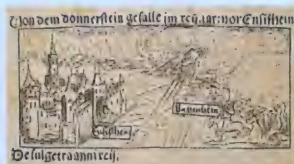 Von dem donnerstein gefallē im xcij. iar: vor Ensishein
Ensishein
De fulgetra anni xcij.